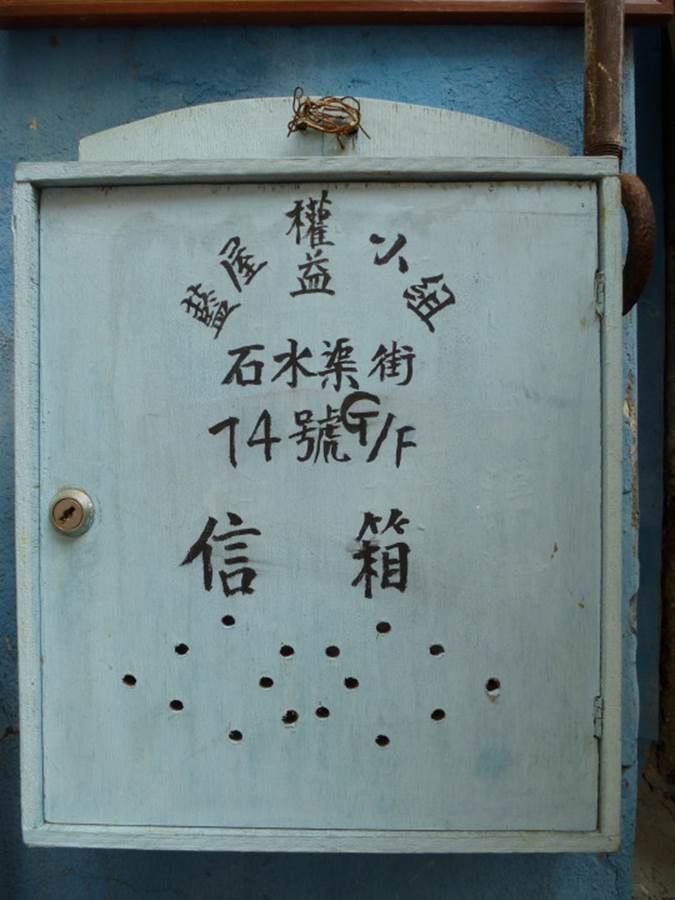 藍屋權益小組
石水渠街
74號G/F
信箱